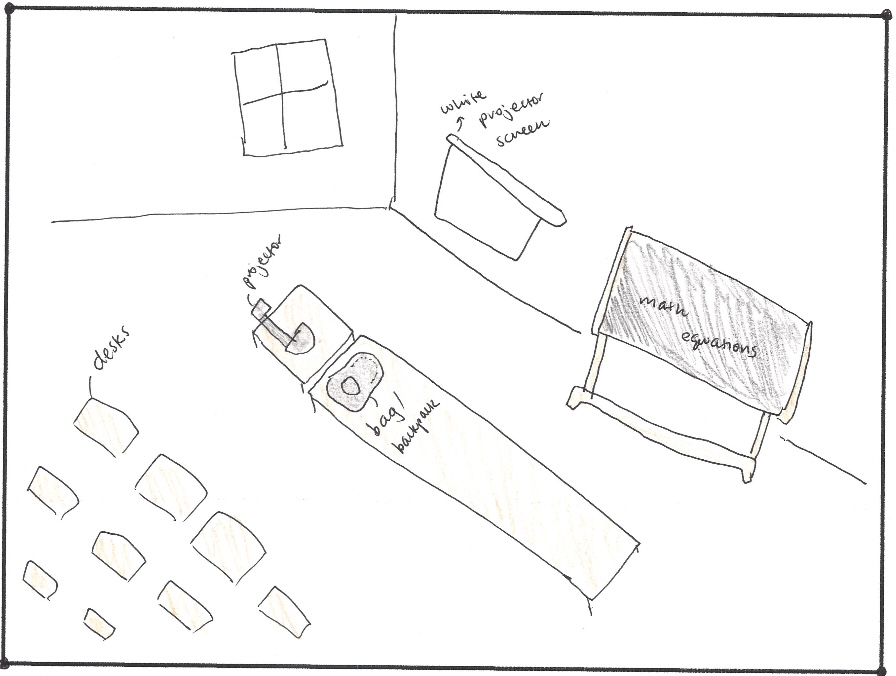 white
projector
screen
projector
math
equations
desks
bag/
backpack